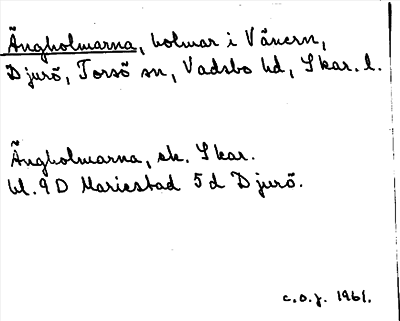 Ängholmarna, holmar i Vänern,
Djurö, Torsö sn, Vadsbo hd, Skar. l.
Ängholmarna, ek. Skar.
bl. 9D Mariestad 5d Djurö.
c.o.j. 1961.